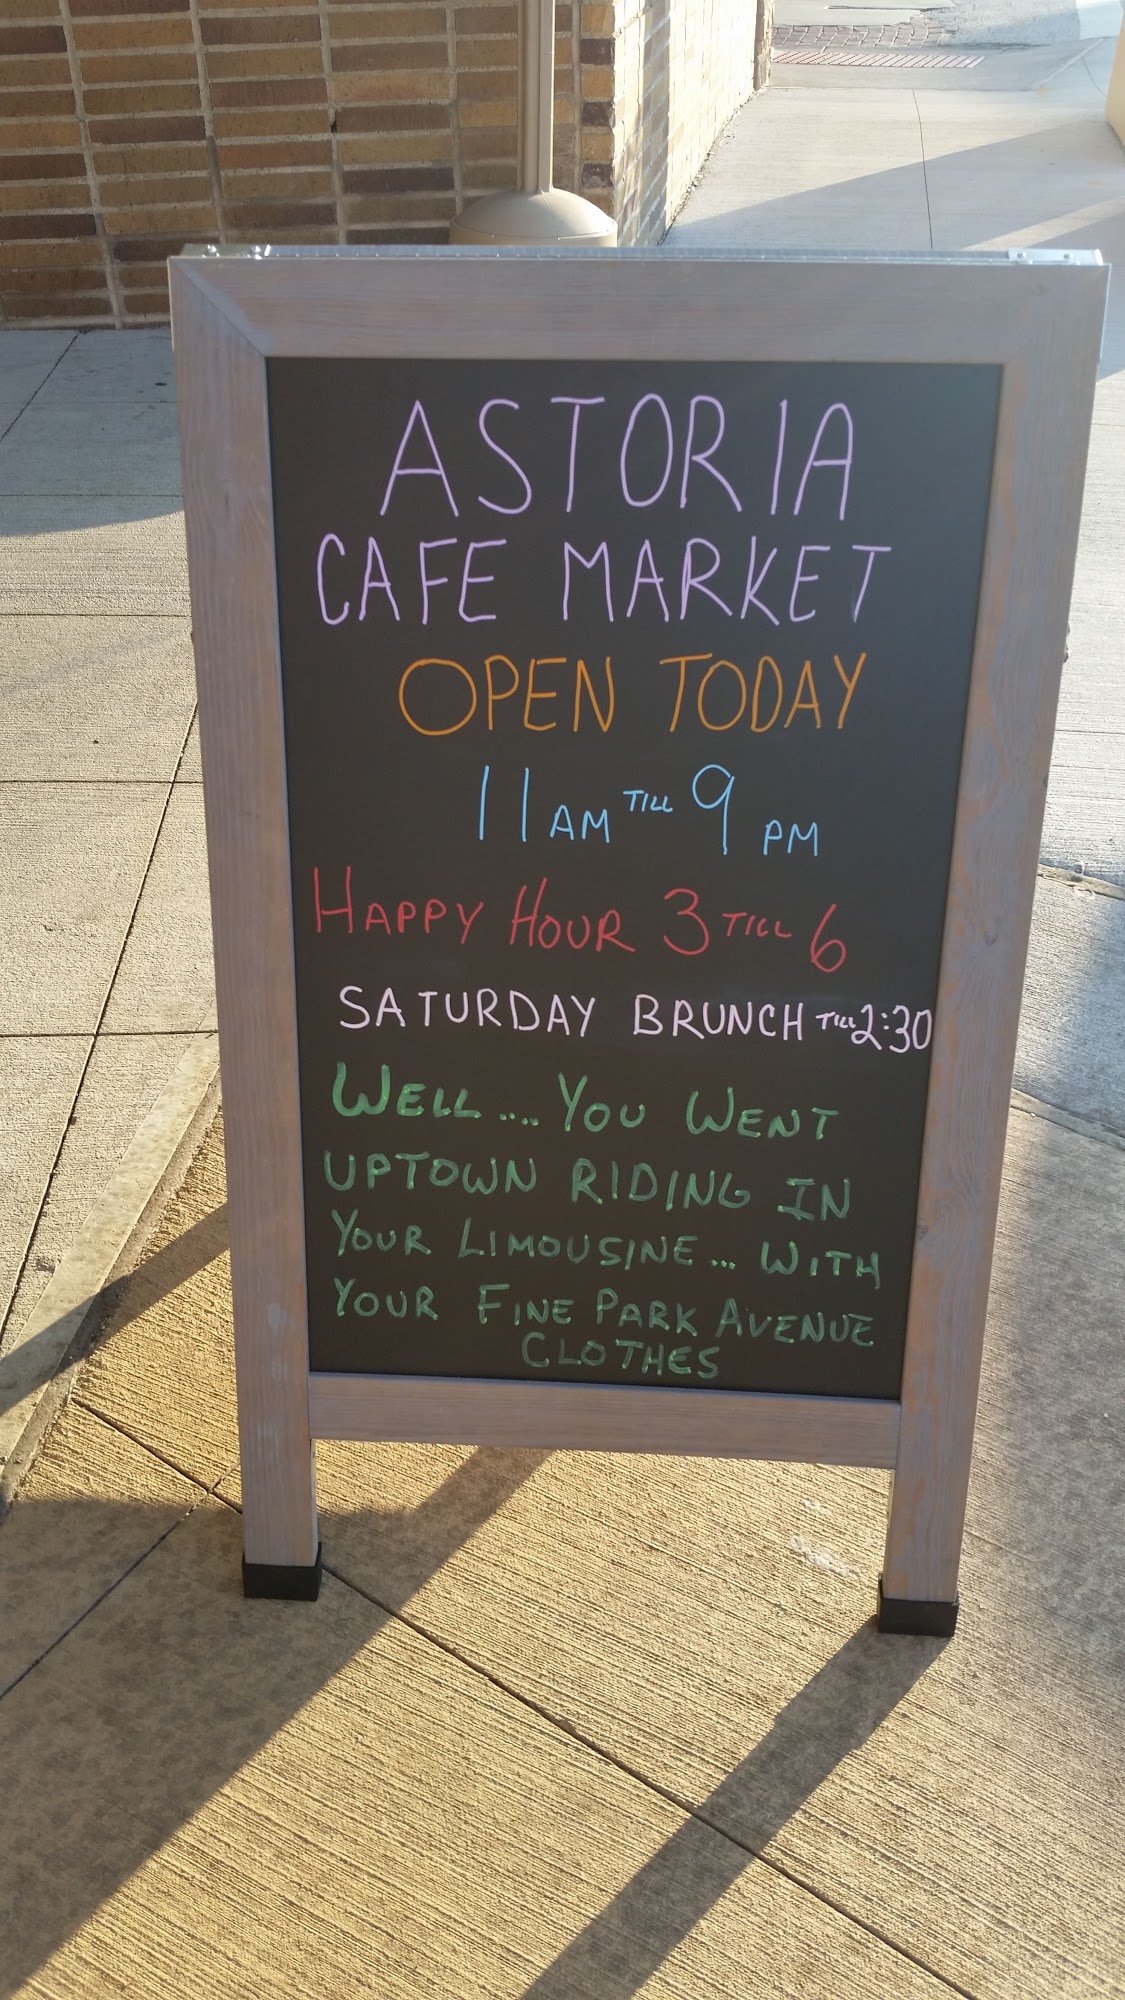 ASTORIA
CAFE MARKET
OPEN TODAY
11 AM TILL 9 PM
HAPPY HOUR 3 TILL 6
SATURDAY BRUNCH TILL 2:30
WELL.... YOU WENT
UPTOWN RIDING IN
YOUR LIMOUSINE... WITH
YOUR FINE PARK AVENUE
CLOTHES